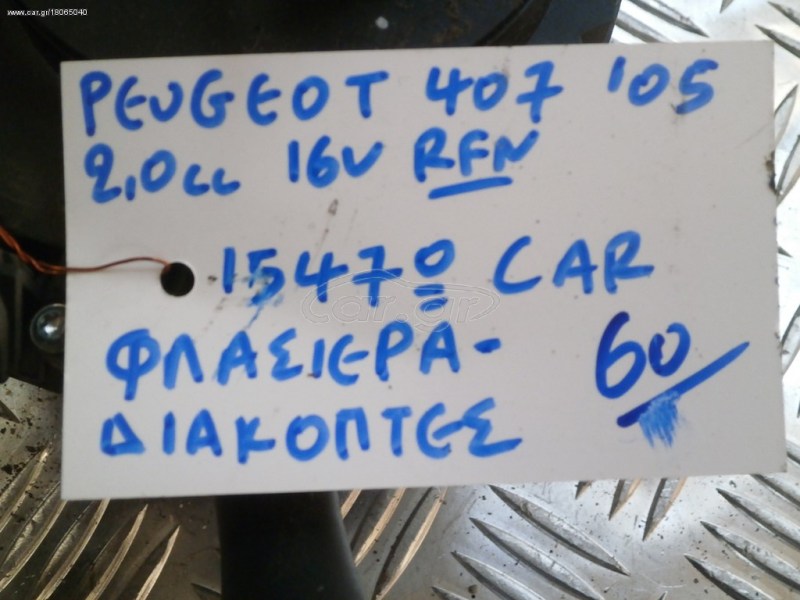 www.car.gr/18065040
PEUGEOT 407 '05
2,0cc 16V RFN
1547º CAR
car.gr
ΦΛΑΣΙΕΡΑ-
60
ΔΙΑΚΟΠΤΕΣ